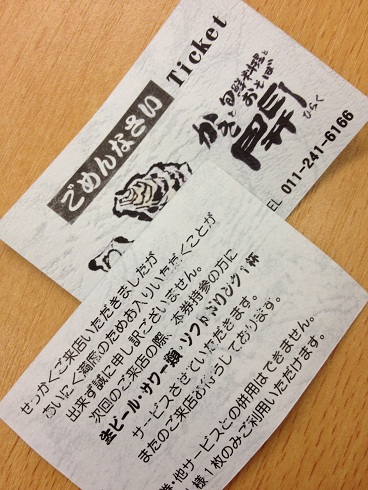 ごめんなさい
Ticket
旬鮮料理と
おそば
かきと
開
ひらく
TEL 011-241-6166
せっかくご来店いただきましたが
あいにく満席のためお入りいただくことが
出来ず誠に申し訳ございません。
次回のご来店の際、本券持参の方に
生ビール・サワー類・ソフトドリンク1杯
サービスさせていただきます。
またのご来店お待ちしております。
券・他サービスとの併用はできません。
様1枚のみご利用いただけます。